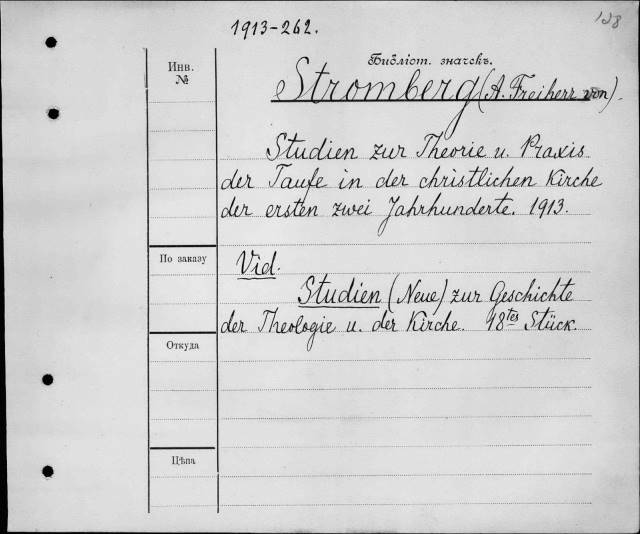 1913-262.
128
Инв.
№
Библіот. значекъ.
Stromberg (A. Freiherr von).
Studien zur Theorie u. Praxis
der Taufe in der christlichen Kirche
der ersten zwei Jahrhunderte. 1913.
По заказу
Vid.
Studien (Neue) zur Geschichte
der Theologie u. der Kirche. 18tes Stück.
Откуда
Цѣна